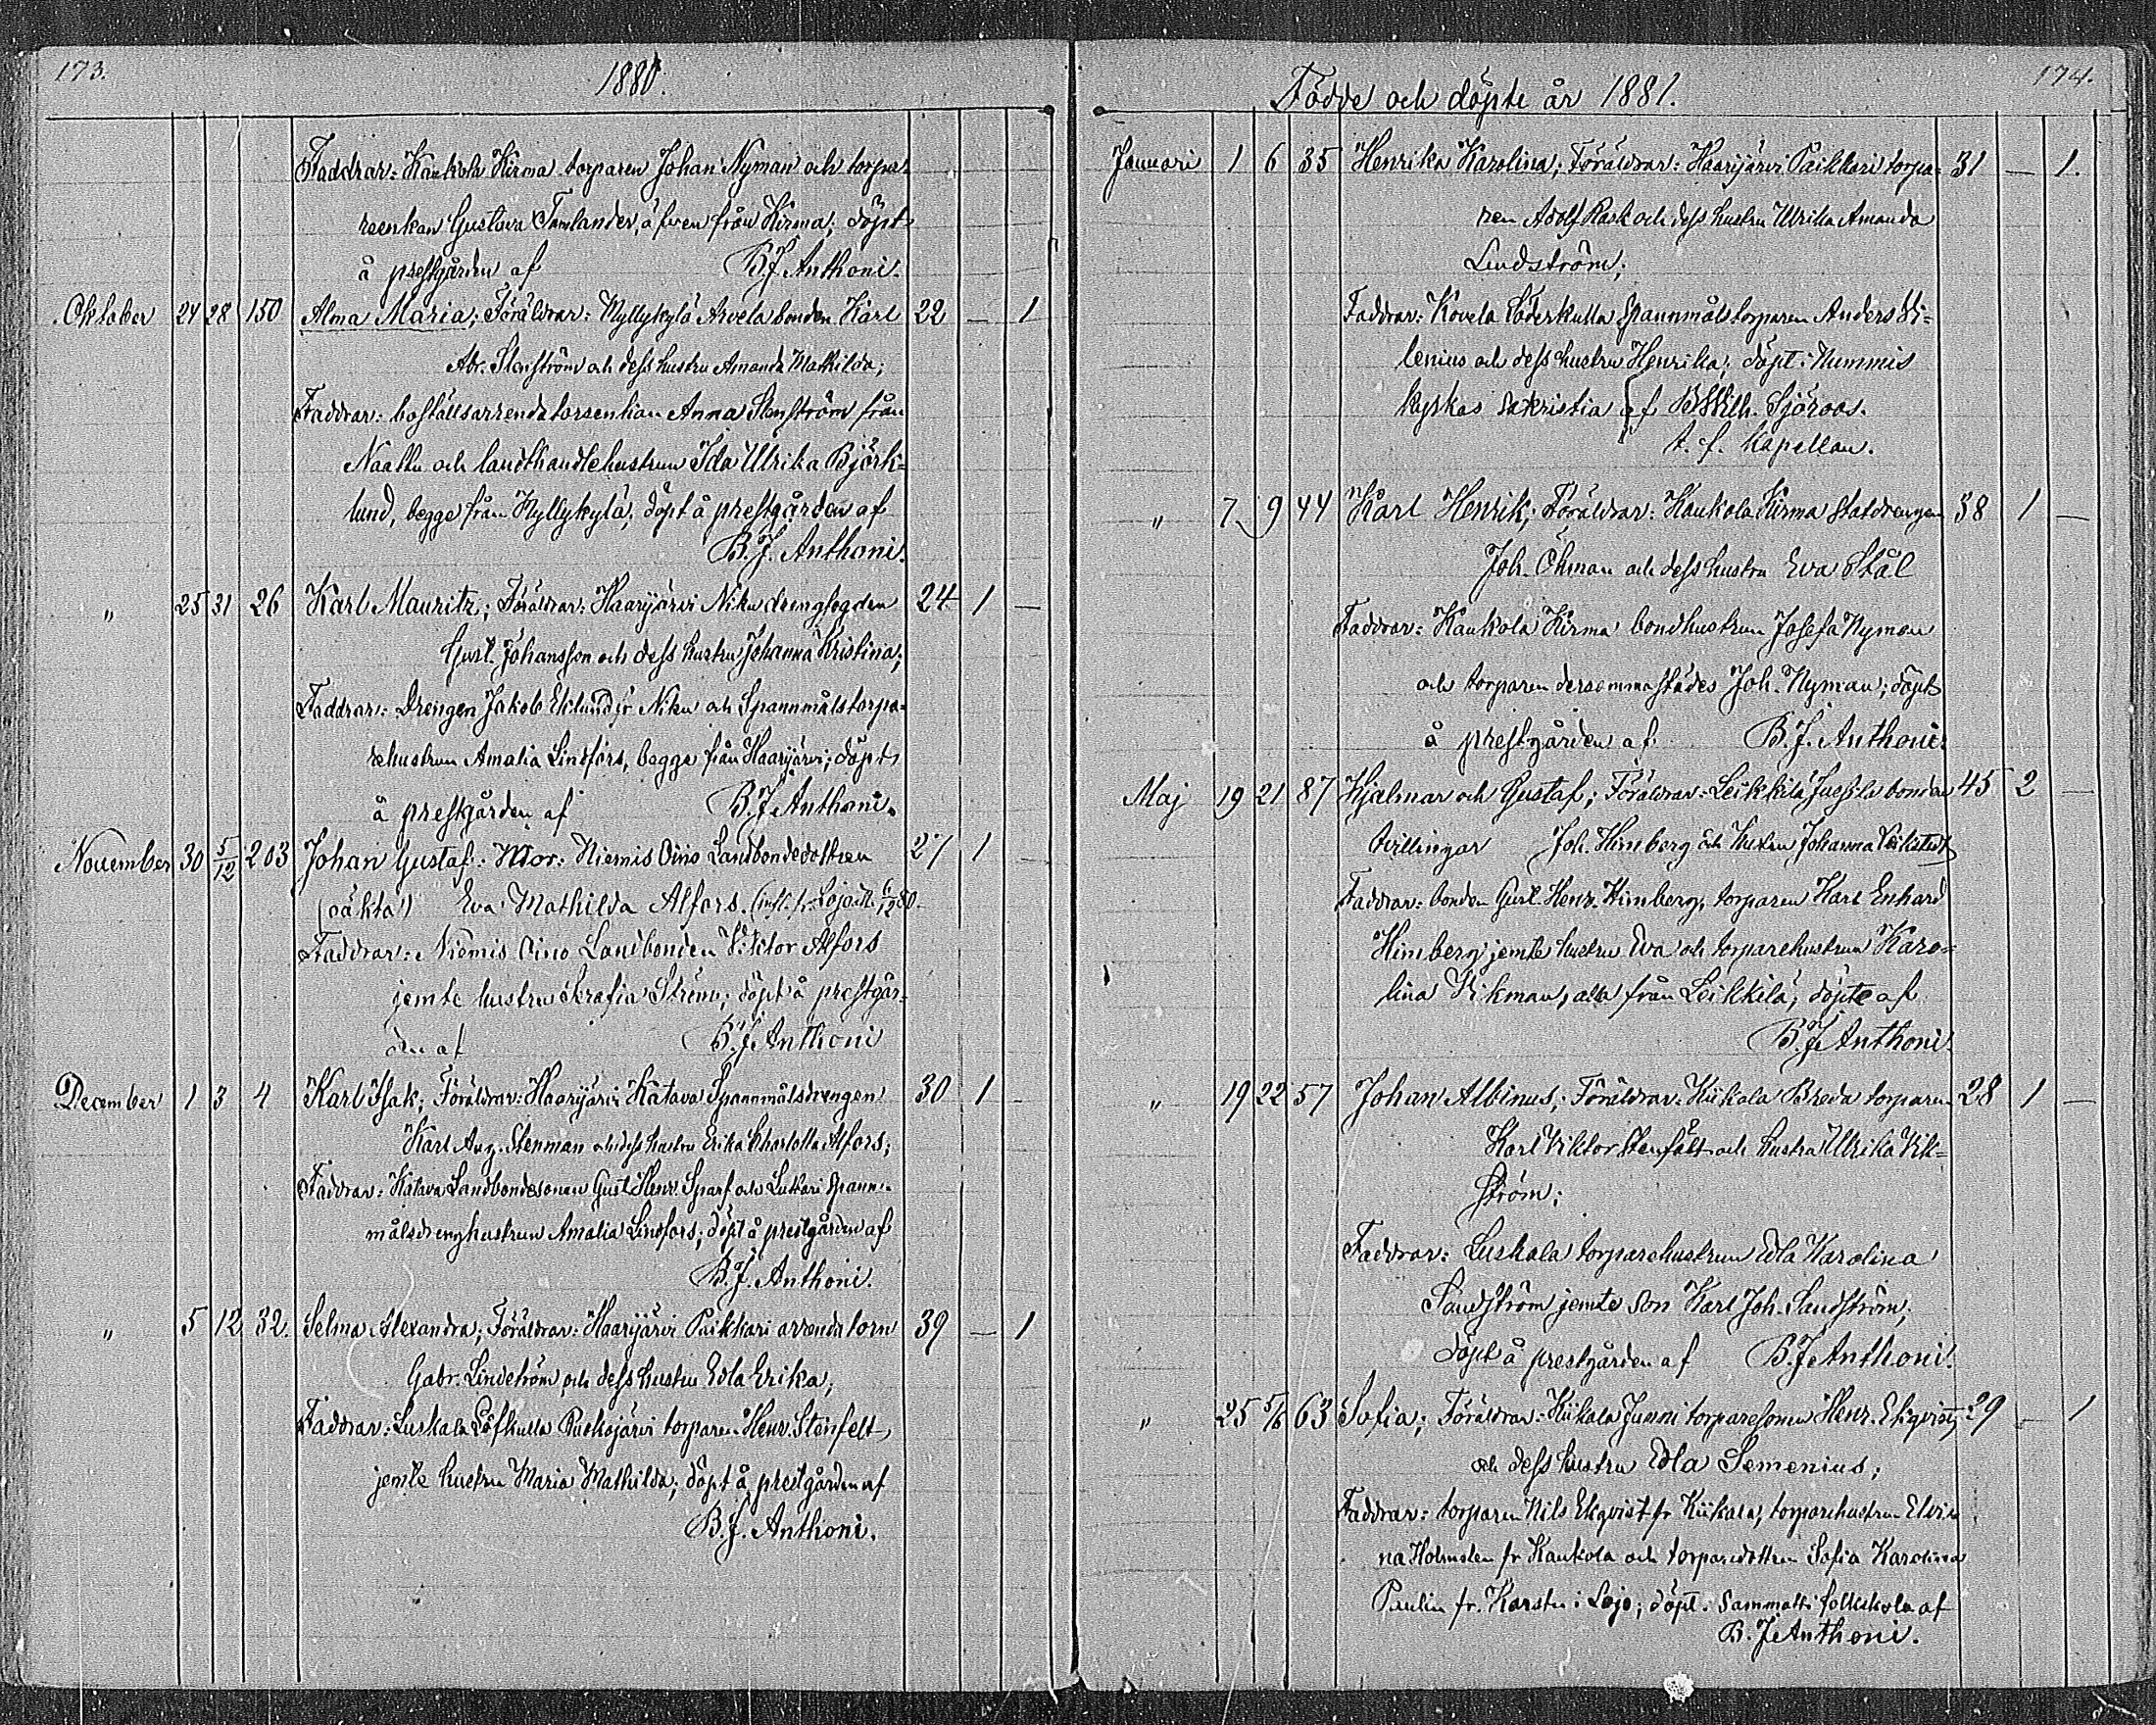 173.
1880.
Faddrar: Kaukola Kirma torparen Johan Nyman och torpa-
reenkan Gustava Tamlander, äfven från Kirma; döpt
å prestgården af B. J. Anthoni.
Oktober 24 28 150 Alma Maria; Föräldrar: Myllykylä Arvela bonden Karl 22 — 1
Abr. Stenström och dess hustru Amanda Mathilda;
Faddrar: boställsarrendatorsenkan Anna Stenström från
Naattu och landthandlehustrun Ida Ulrika Björk-
lund, begge från Myllykylä; döpt å prestgården af
B. J. Anthoni.
" 25 31 26 Karl Mauritz; Föräldrar: Haarijärvi Niku drengfogden 24 1 —
Gust. Johansson och dess hustru Johanna Kristina;
Faddrar: Drengen Jakob Eklund fr Niku och Spannmålstorpa-
rehustrun Amalia Lindfors, begge från Haarijärvi; döpt
å prestgården af B. J. Anthoni.
November 30 5/12 203 Johan Gustaf: Mor: Niemis Oino Landbondedottren 27 1
(oäkta) Eva Mathilda Alfors. Lojo
Faddrar: Niemis Oino Landbonden Viktor Alfors
jemte hustru Serafia Ström; döpt å prestgår-
den af B. J. Anthoni
December 1 3 4 Karl Isak; Föräldrar: Haarijärvi Katava Spannmålsdrengen 30 1 -
Karl Aug. Stenman och dess hustru Erika Charlotta Alfors;
Faddrar: Katava Landbondesonen Gust. Henr. Sparf och Lukari Spann-
målsdrenghustrun Amalia Lindfors; döpt å prestgården af
B. J. Anthoni.
" 5 12 32. Selma Alexandra; Föräldrar: Haarijärvi Paikkari arrendatorn 39 — 1
Gabr. Lindström och dess hustru Edla Erika;
Faddrar: Luskala Löfkulla Putkojärvi torparen Henr. Stenfelt
jemte hustru Maria Mathilda; döpt å prestgården af
B. J. Anthoni.
174.
Födde och döpte år 1881.
Januari 1 6 35 Henrika Karolina; Föräldrar: Haarijärvi Paikkari torpa- 31 — 1.
ren Adolf Rask och dess hustru Ulrika Amanda
Lindström;
Faddrar: Kovela Söderkulla Spannmålstorparen Anders Si-
lenius och dess hustru Henrika; döpt i Nummis
kyrkas sakristia af Wilh. Sjöroos.
t. f. Kapellan.
" 7 9 44 Karl Henrik; Föräldrar: Kaukola Kirma statdrengen 38 1 —
Joh. Öhman och dess hustru Eva Stål
Faddrar: Kaukola Kirma bondhustrun Josefa Nyman
och torparen dersammastädes Joh. Nyman; döpt
å prestgården af B. J. Anthoni.
Maj 19 21 87 Hjalmar och Gustaf; Föräldrar: Leikkilä Jussila bonden 45 2 —
tvillingar Joh. Himberg och hustru Johanna Vikstedt
Faddrar: bonden Gust. Henr. Himberg, torparen Karl Enhard
Himberg jemte hustru Eva och torparehustrun Karo-
lina Vikman, alla från Leikkilä; döpte af
B. J. Anthoni.
" 19 22 57 Johan Albinus; Föräldrar: Kiikala Breda torparen 28 1 —
Karl Viktor Stenfält och hustru Ulrika Vik-
ström;
Faddrar: Luskala torparehustrun Edla Karolina
Sandström jemte son Karl Joh. Sandström;
döpt å prestgården af B. J. Anthoni.
" 25 5/6 63 Sofia; Föräldrar: Kiikala Junni torparesonen Henr. Ekqvist 29 - 1
och dess hustru Edla Semenius;
Faddrar: torparen Nils Ekqvist fr Kiikala, torparehustrun Elvi-
na Holmsten fr Kaukola och torparedottren Sofia Karolina
Paulin fr. Karstu i Lojo; döpt i Sammatti folkskola af
B. J. Anthoni.